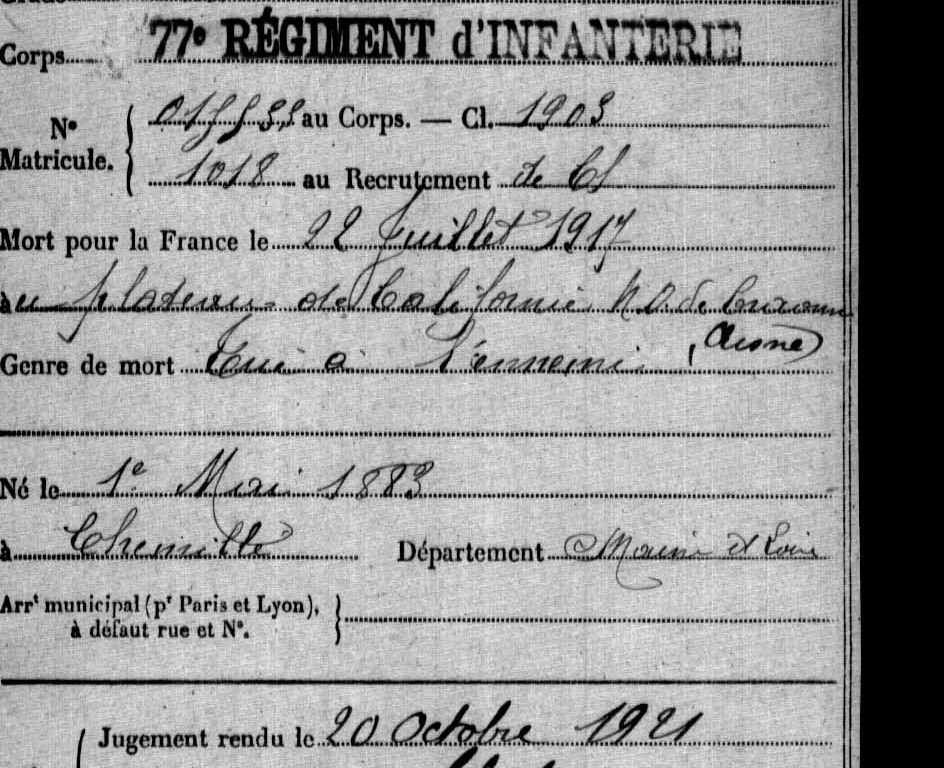 Corps 77e RÉGIMENT d'INFANTERIE
No Matricule. au Corps. — Cl. 1903
1018 au Recrutement de
Mort pour la France le 22 Juillet 1917
au plateau de Californie N.O. de Craonne
(Aisne)
Genre de mort Tué à l'ennemi
Né le 1e Mai 1883
à Chemillé Département Maine et Loire
Arrt municipal (pr Paris et Lyon),
à défaut rue et No.
Jugement rendu le 20 Octobre 1921